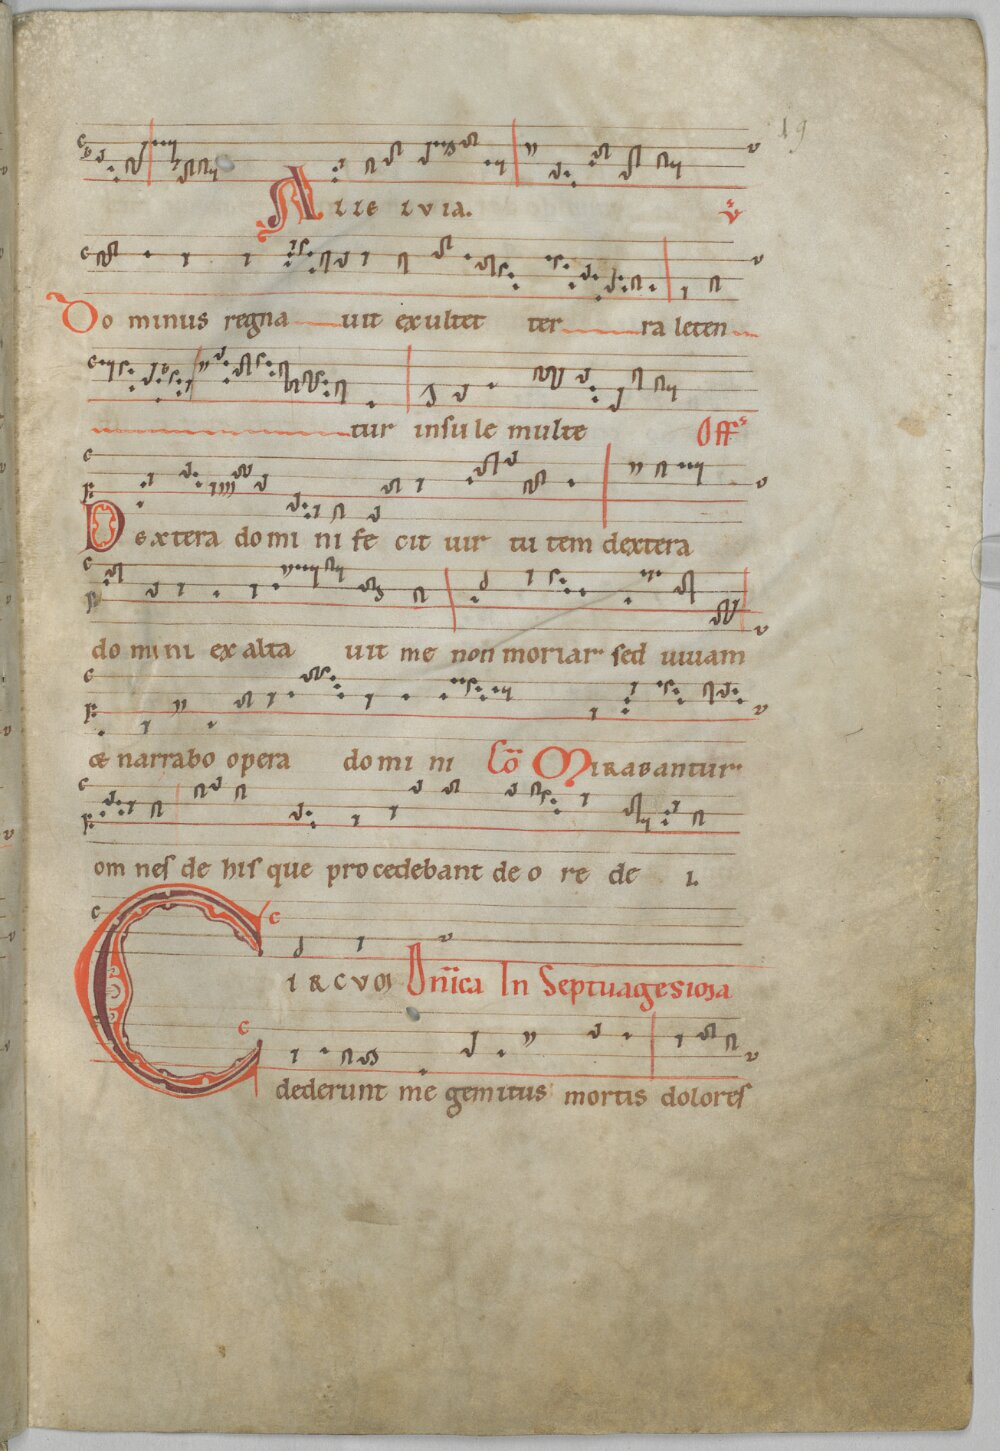 19
Alle luia. v̄
Do minus regna uit exultet ter ra leten
tur insule multe Offs
Dextera domini nifecit uir tutem dextera
domini exalta uit me non moriar sed uiuam
& narrabo opera domini Cō Mirabantur
omnes de his que procedebant de o re de i.
Circum Dn̄ica In Septuagesima
dederunt me gemitus mortis dolores